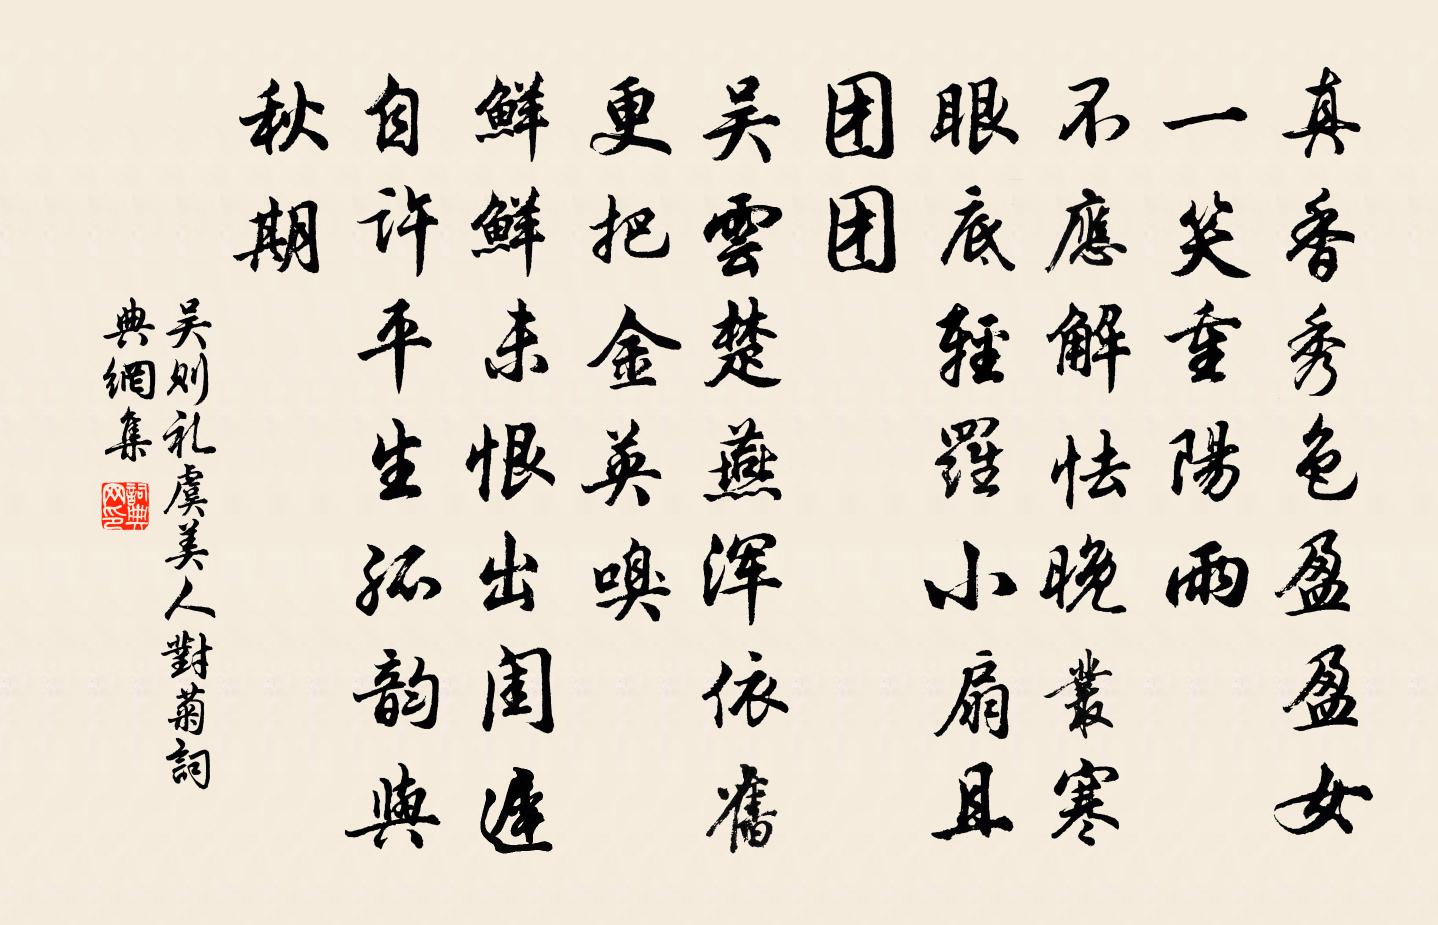 真香秀色盈盈女
一笑重陽雨
不應解怯晚叢寒
眼底輕羅小扇且
团团
吴雲楚燕浑依舊
更把金英嗅
鲜鲜未恨出闺遲
自許平生孤韵與
秋期
吴则礼虞美人對菊詞
典網集
詞典
网印